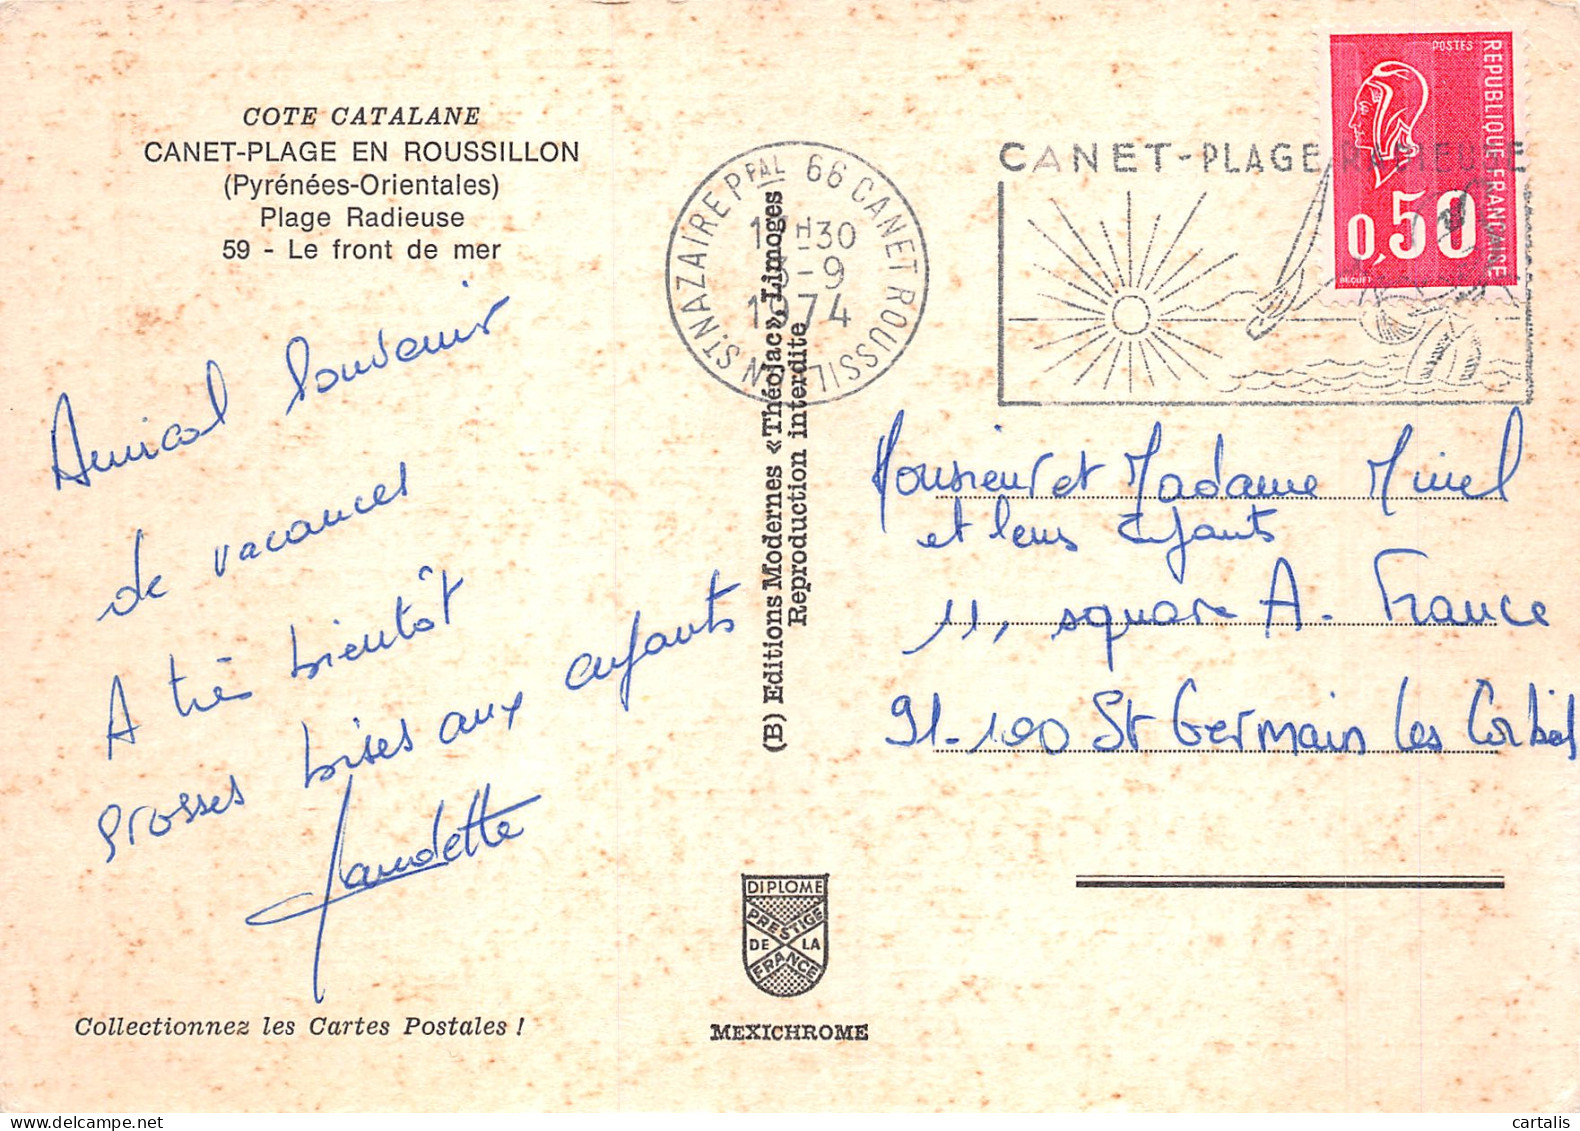 COTE CATALANE
CANET-PLAGE EN ROUSSILLON
(Pyrénées-Orientales)
Plage Radieuse
59 - Le front de mer
Amical Souvenir
de vacances
A très bientôt
grosses bises aux enfants
Collectionnez les Cartes Postales !
66 CANET ROUSSILLON ST.NAZAIRE PPAL
H30
-9
1974
(B) Editions Modernes «Théojac», Limoges
Reproduction interdite
DIPLOME
PRESTIGE
DE LA
FRANCE
MEXICHROME
CANET-PLAGE RADIEUSE
POSTES
REPUBLIQUE FRANÇAISE
0,50
BEQUET
Monsieur et Madame
et leurs Enfants
11, square A. France
91-100 St Germain les Corbeil
cartalis